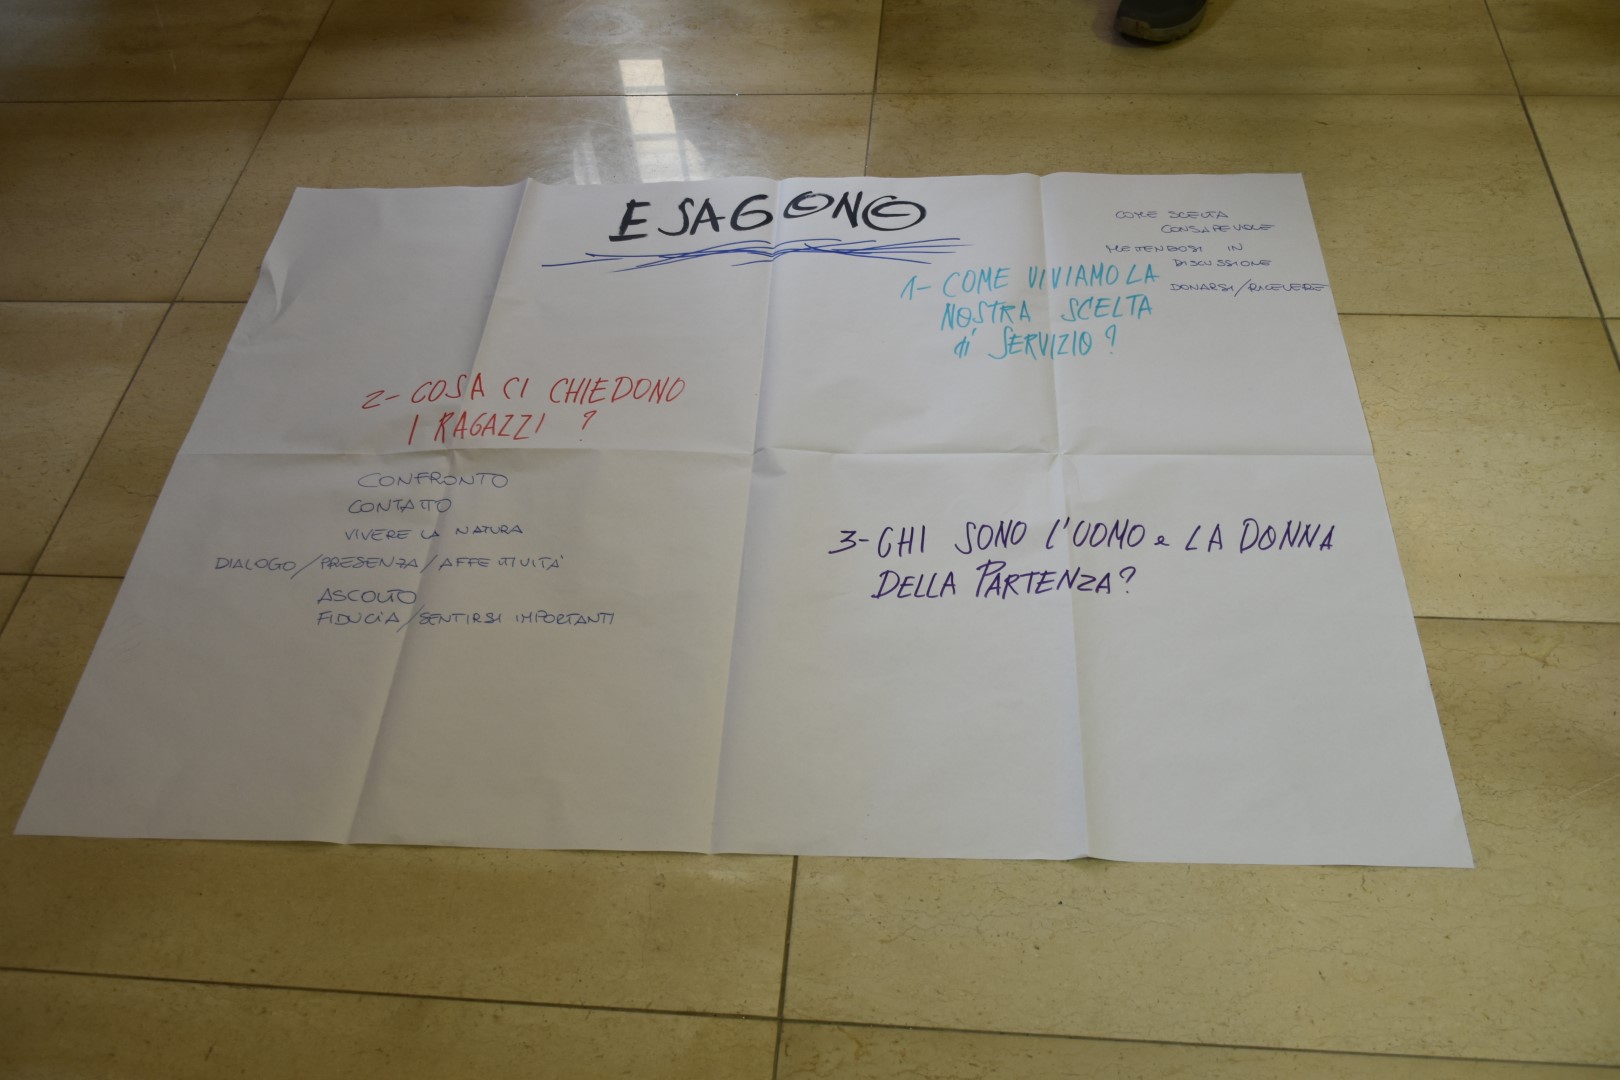 ESAGONO
COME SCELTA
CONSAPEVOLE
METTENDOSI IN
DISCUSSIONE
DONARSI/RICEVERE
1- COME VIVIAMO LA
NOSTRA SCELTA
di SERVIZIO?
2- COSA CI CHIEDONO
I RAGAZZI ?
CONFRONTO
CONTATTO
VIVERE LA NATURA
DIALOGO/PRESENZA/AFFETTIVITA'
ASCOLTO
FIDUCIA/SENTIRSI IMPORTANTI
3- CHI SONO L'UOMO e LA DONNA
DELLA PARTENZA?